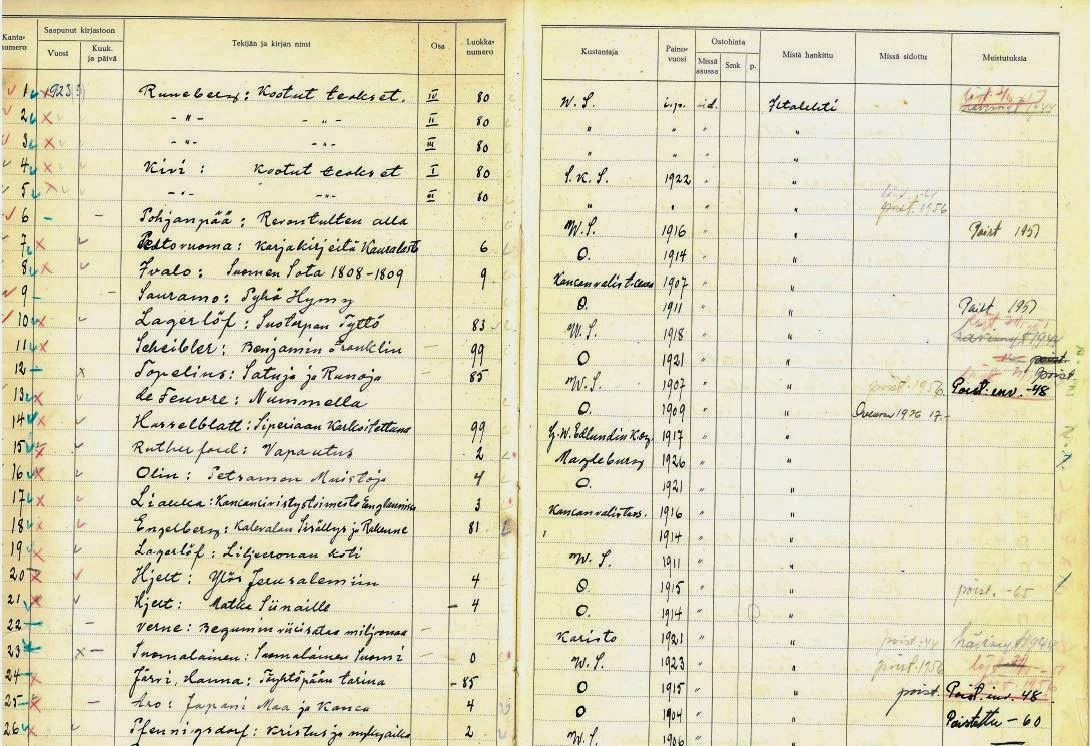 Kanta-numero Saapunut kirjastoon Vuosi Kuuk. ja päivä Tekijän ja kirjan nimi Osa Luokka-numero Kustantaja Paino-vuosi Ostohinta Missä asussa Smk p. Mistä hankittu Missä sidottu Muistutuksia
1 1923 Runeberg: Kootut teokset. IV 80 W. S. i.p. sid. Iltalehti
2 -"- -"- II 80 " " " "
3 -"- -"- III 80 " " " "
4 Kivi: Kootut teokset I 80 S.K.S. 1922 " "
5 -"- -"- III 80 " " " " poist. 1956
6 - - Pohjanpää: Revontulten alla W.S. 1916 " " Poist 1957
7 Peltovuoma: Karjakirjeitä Kauralasta 6 O. 1914 " "
8 Ivalo: Suomen Sota 1808-1809 9 Kansanvalist. seura 1907 " "
9 - Sauramo: Pyhä Hymy O. 1911 " " Poist 1957
10 Lagerlöf: Suotorpan Tyttö 83 W.S. 1918 " " hävinnyt 1944
11 Scheibler: Benjamin Franklin - 99 O 1921 " " poist.
12 - Topelius: Satuja ja Runoja - 85 W.S. 1907 " " poist. 1956 Poist. inv. -48
13 de Feuvre: Nummella O. 1909 " "
14 Hasselblatt: Siperiaan Karkoitettuna 99 G.W. Edlundin K. 1917 " "
15 Rutherford: Vapautus 2 Magdeburg 1926 " "
16 Olin: Petsamon Muistoja 4 O. 1921 " "
17 Liakka: Kansansivistystoimesta Englannissa 3 Kansanvalistus. 1916 " "
18 Engelberg: Kalevalan Sisällys ja Rakenne 81 1914 " "
19 Lagerlöf: Liljecronan koti W.S. 1911 " "
20 Hjelt: Ylös Jerusalemiin 4 O 1915 " " poist. -65
21 Hjelt: Matka Siinaille - 4 O. 1914 " "
22 - - Verne: Begumin viisisataa miljoonaa - Karisto 1921 " " poist. 44 hävinnyt 1944
23 - Suomalainen: Suomalainen Suomi - 0 W.S. 1923 " " poist 1956
24 Järvi, Hanna: Töyhtöpään tarina - 85 O 1915 " " poist. Poist. inv. 48
25 - Aro: Japani Maa ja Kansa 4 O 1904 " " Poistettu -60
26 Pfennigsdorf: Kristus ja nykyaika 2 W.S. 1906 " "